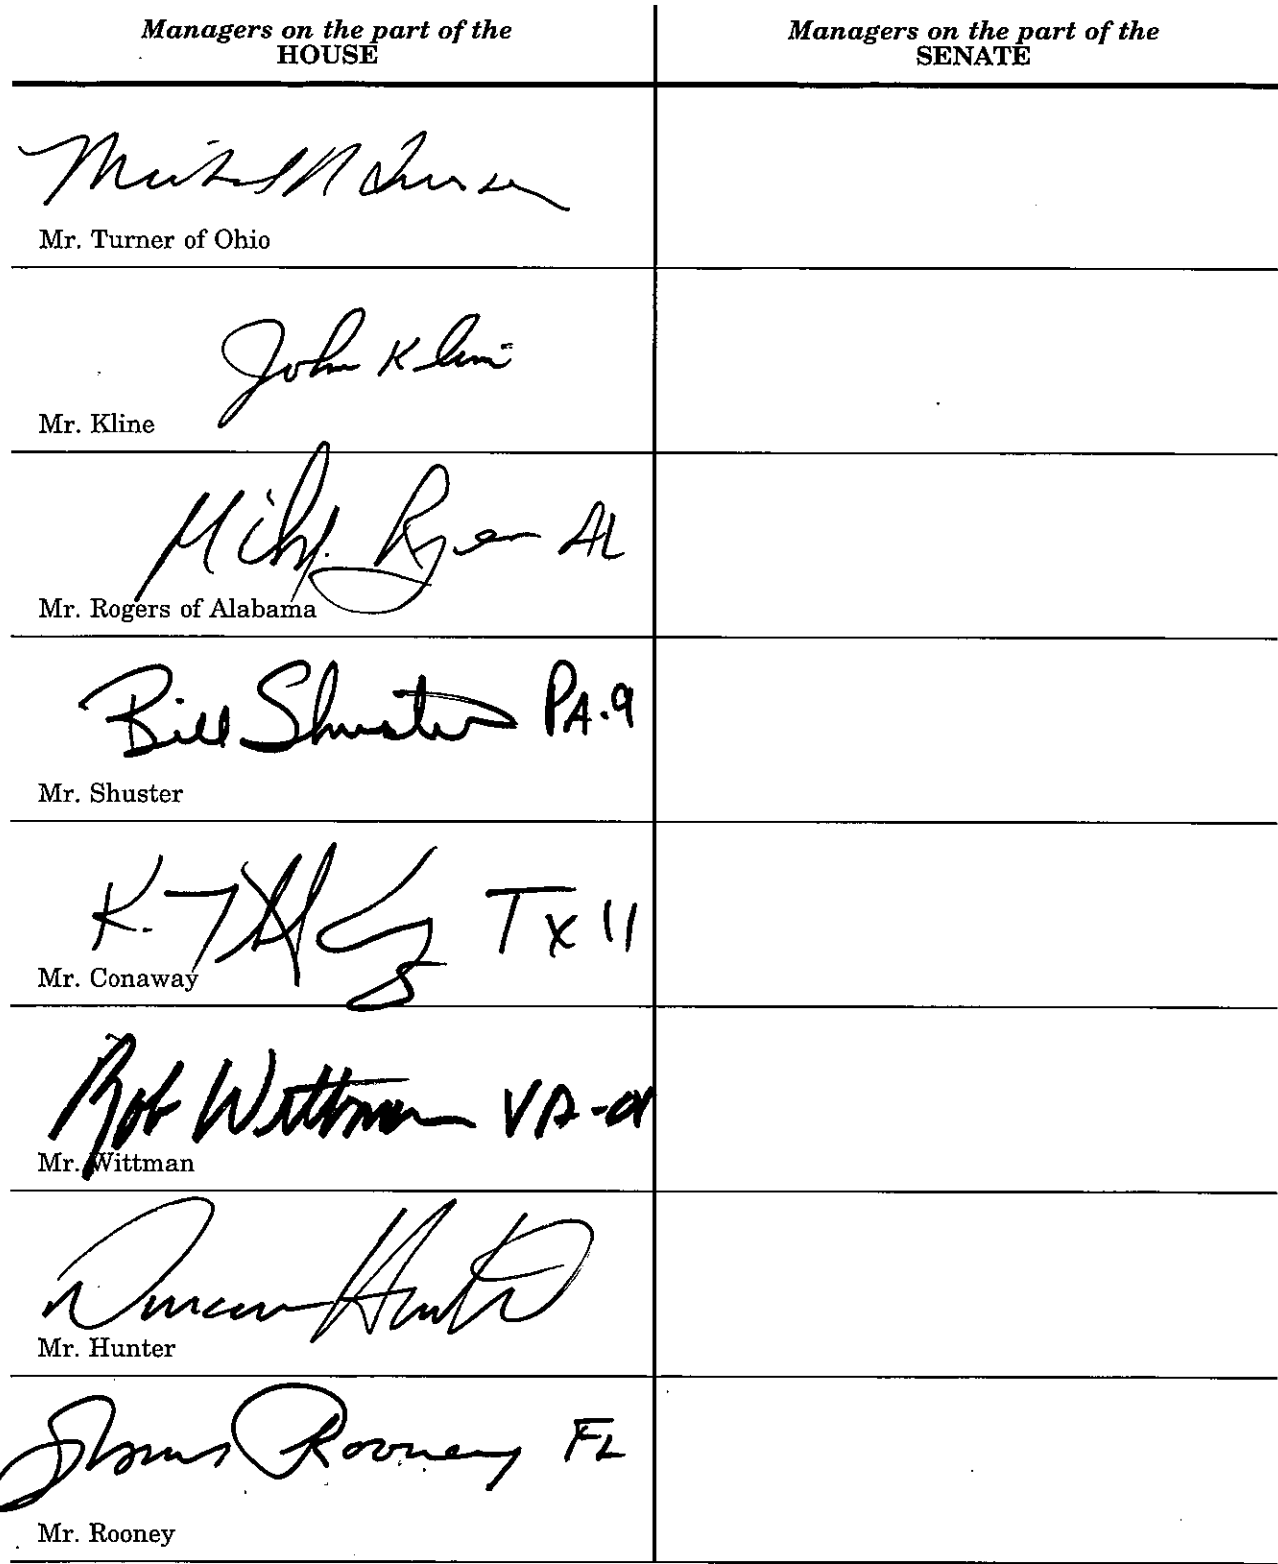 Managers on the part of the
HOUSE
Managers on the part of the
SENATE
Mr. Turner of Ohio
John Kline
Mr. Kline
AL
Mr. Rogers of Alabama
Bill Shuster PA-9
Mr. Shuster
K. TX 11
Mr. Conaway
Rob Wittman VA-01
Mr. Wittman
Duncan Hunter
Mr. Hunter
Thomas Rooney FL
Mr. Rooney